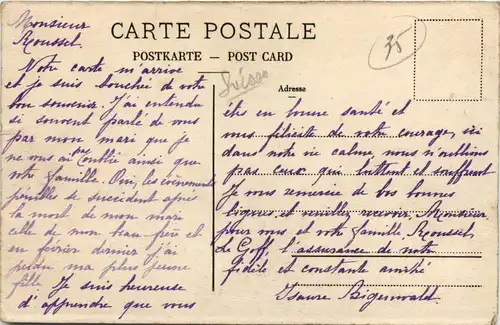 Monsieur
Roussel.
Votre carte m'arrive
et je suis touchée de votre
bon souvenir. J'ai entendu
si souvent parlé de vous
par mon mari que je
ne vous ai pas oublié ainsi que
votre famille. Oui, les évènements
pénibles se succèdent après
la mort de mon mari
celle de mon beau père et
en février dernier j'ai
perdu ma plus jeune
fille. Je suis heureuse
d'apprendre que vous
CARTE POSTALE
POSTKARTE — POST CARD
Suisse
35
Adresse
êtes en bonne santé et
vous félicite de votre courage, ici
dans notre vie calme, nous n'oublions
pas ceux qui luttent et souffrent
Je vous remercie de vos bonnes
lignes et veuillez recevoir, Monsieur
pour vous et votre famille Roussel
Le Goff, l'assurance de notre
fidèle et constante amitié
Isaure Bigenwald